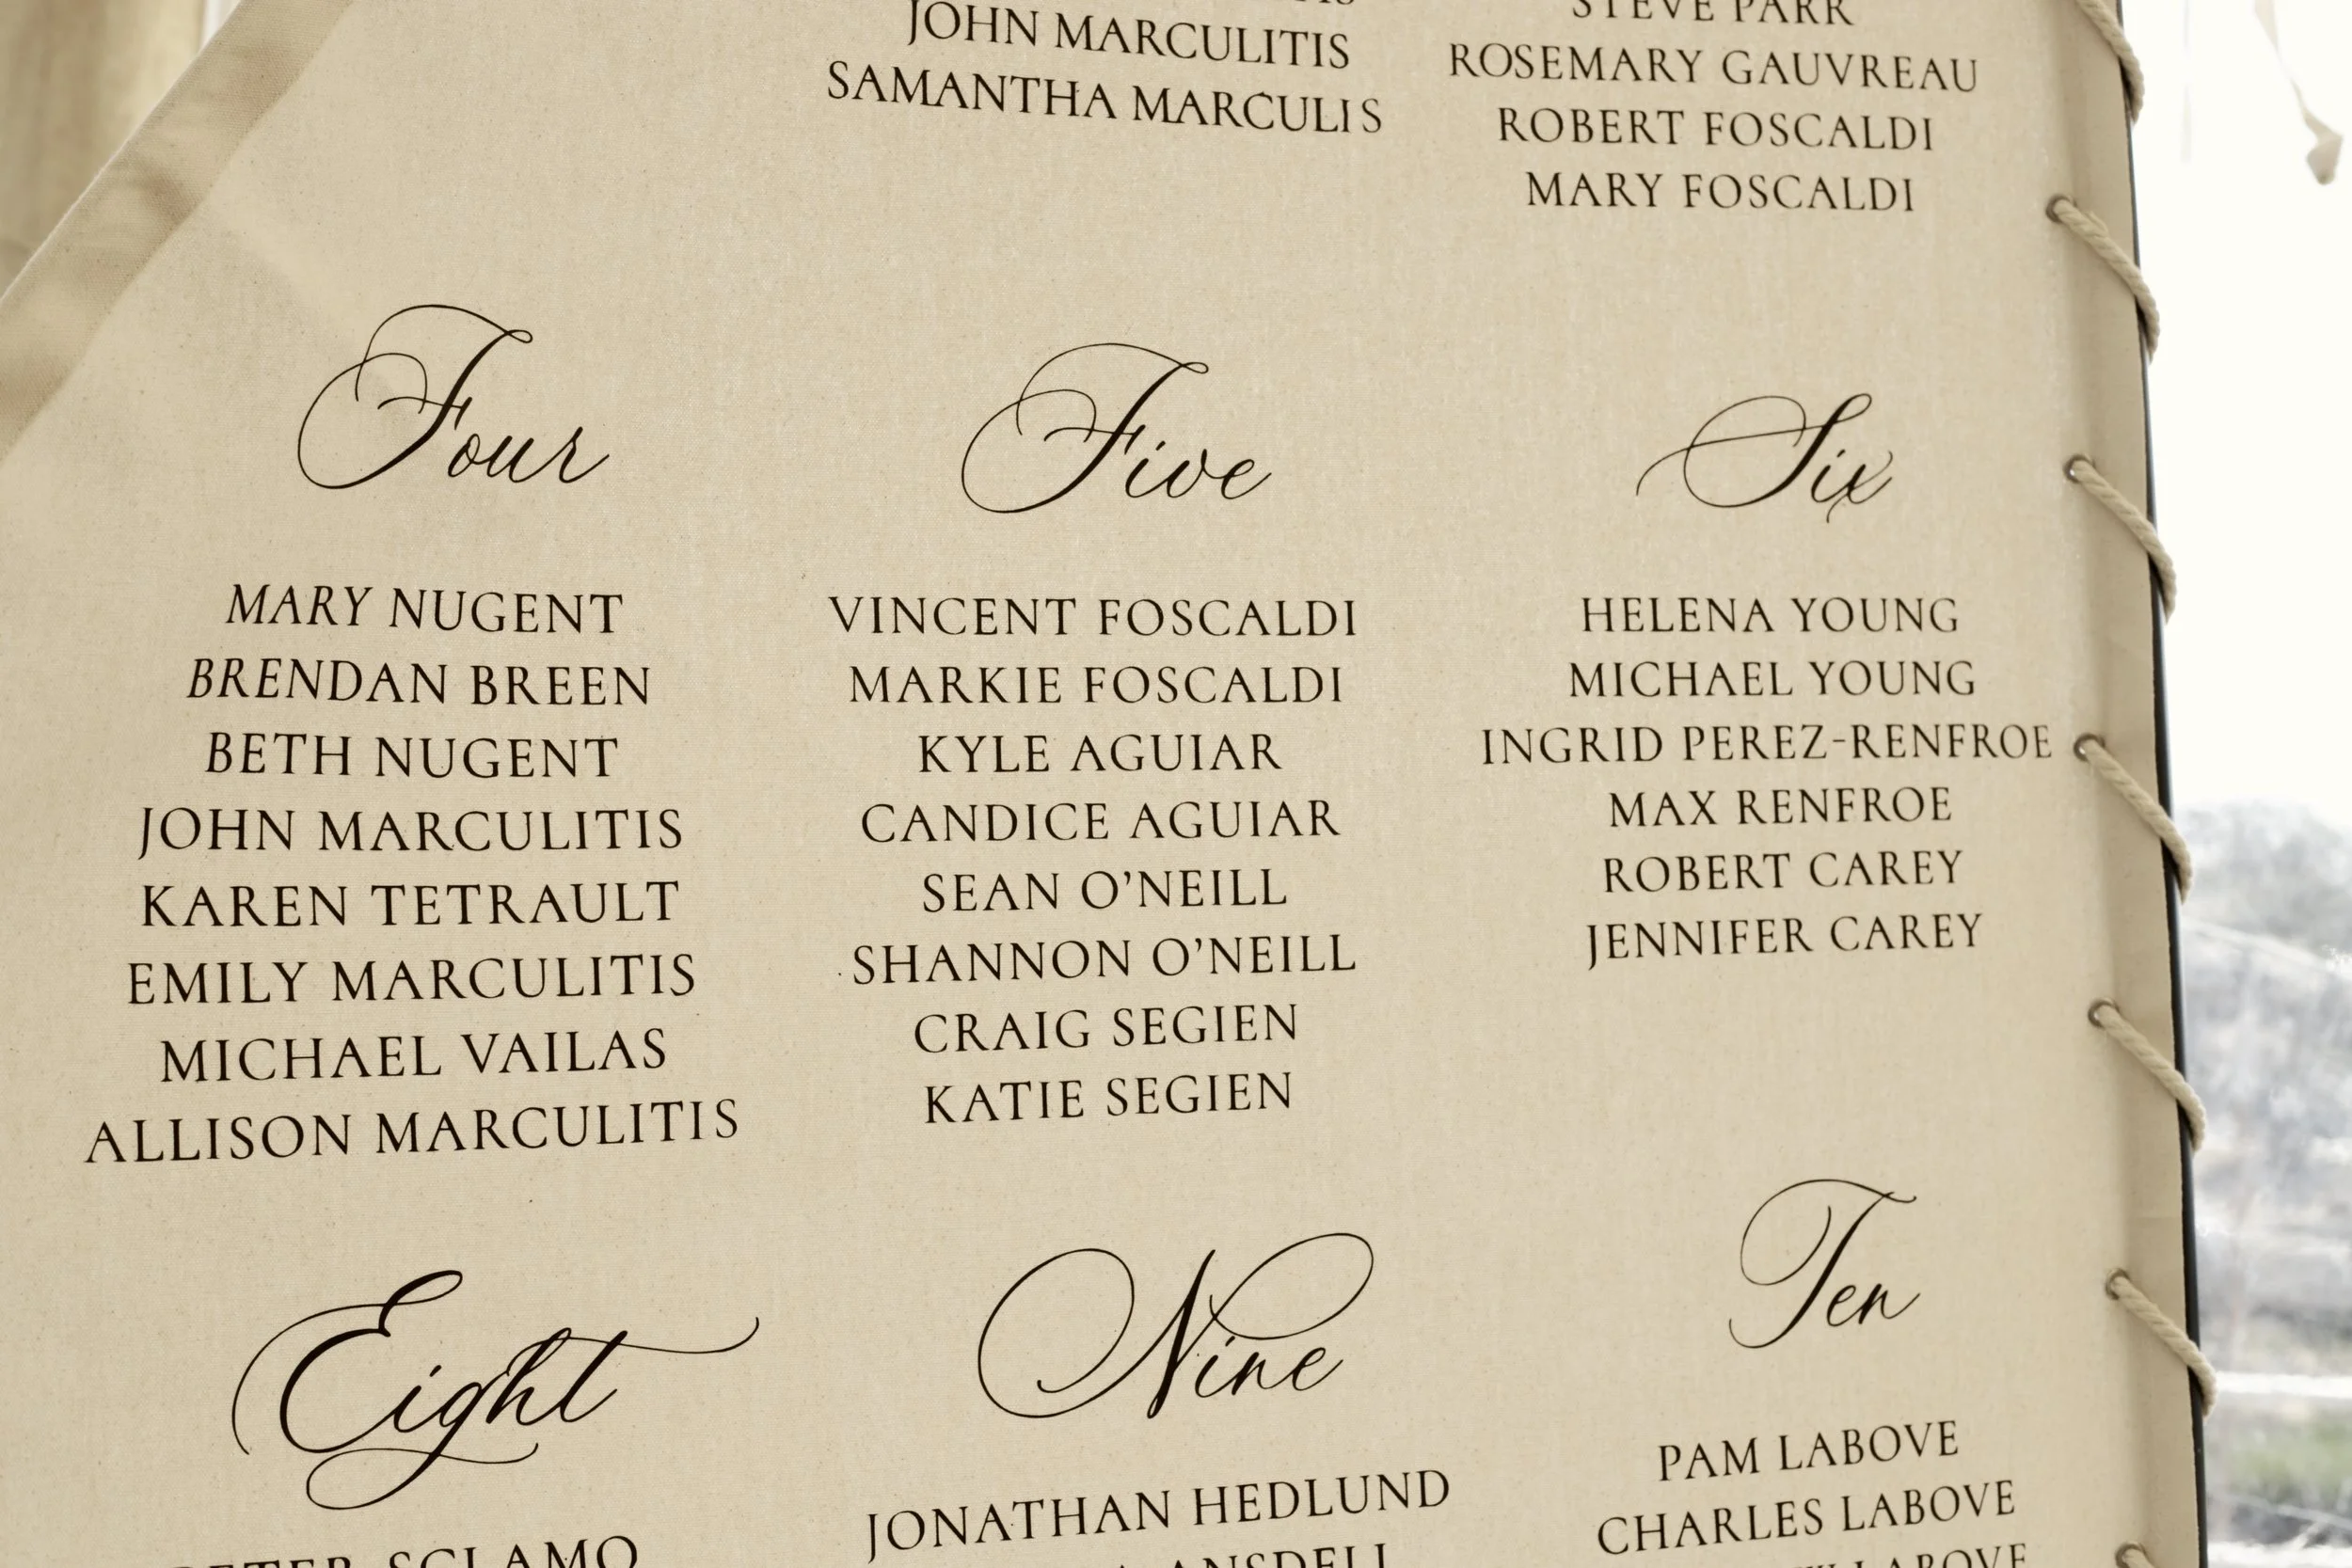 JOHN MARCULITIS
SAMANTHA MARCULIS
STEVE PARR
ROSEMARY GAUVREAU
ROBERT FOSCALDI
MARY FOSCALDI
Four
MARY NUGENT
BRENDAN BREEN
BETH NUGENT
JOHN MARCULITIS
KAREN TETRAULT
EMILY MARCULITIS
MICHAEL VAILAS
ALLISON MARCULITIS
Five
VINCENT FOSCALDI
MARKIE FOSCALDI
KYLE AGUIAR
CANDICE AGUIAR
SEAN O’NEILL
SHANNON O’NEILL
CRAIG SEGIEN
KATIE SEGIEN
Six
HELENA YOUNG
MICHAEL YOUNG
INGRID PEREZ-RENFROE
MAX RENFROE
ROBERT CAREY
JENNIFER CAREY
Eight
Nine
JONATHAN HEDLUND
Ten
PAM LABOVE
CHARLES LABOVE
LABOVE